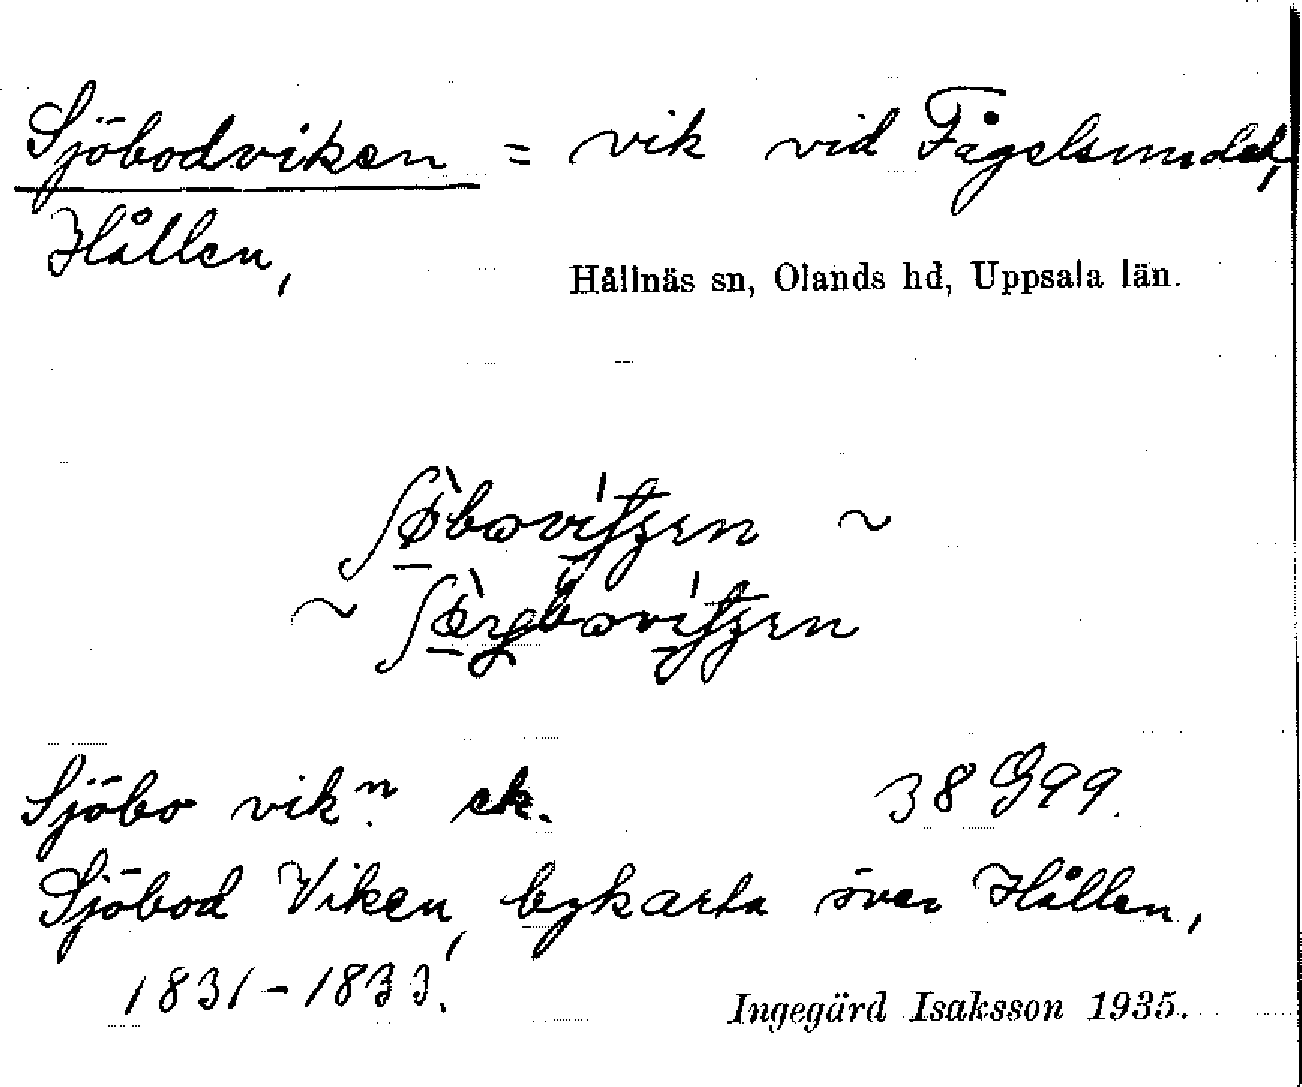 Sjöbodviken = vik vid Fågelsundet,
Hållen,
Hållnäs sn, Olands hd, Uppsala län.
~
~
Sjöbo vikⁿ. ek. 38 G 99.
Sjöbod Viken, bykarta över Hållen,
1831-1833.
Ingegärd Isaksson 1935.